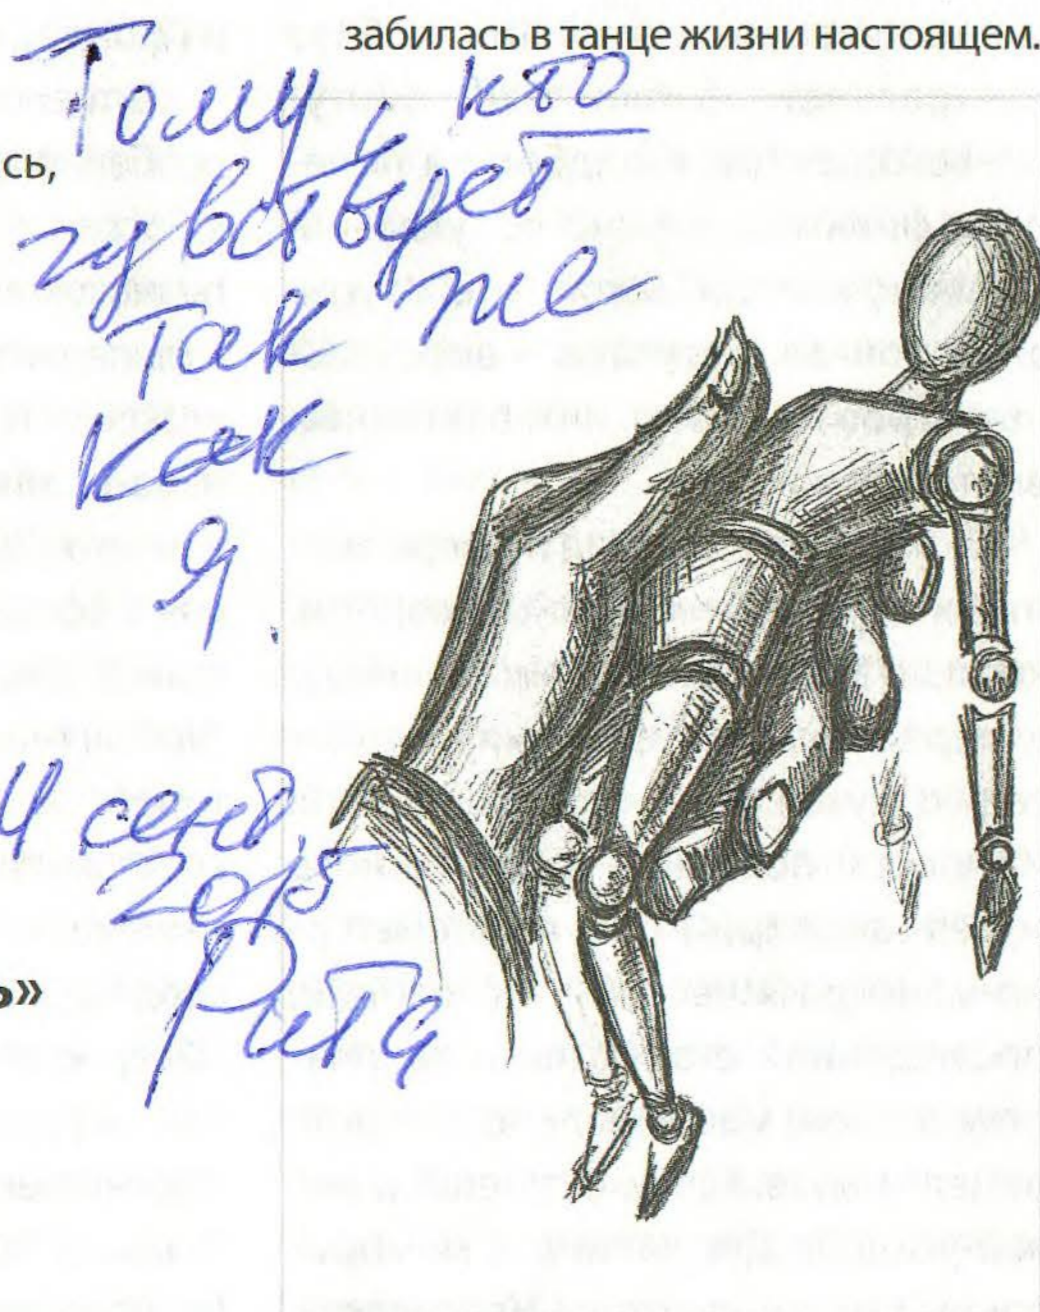 забилась в танце жизни настоящем.
Тому, кто
сь,
чувствует
так же
как
я.
4 сент.
2015
ь»
Рита